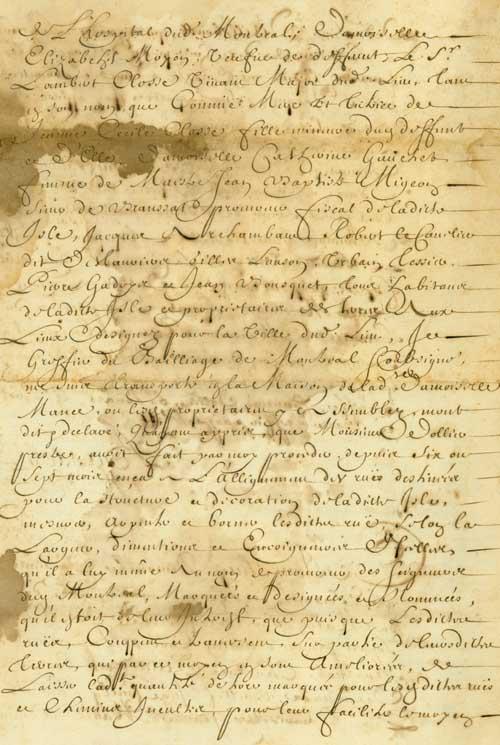 de L'hospital dud. Montreal, Damoiselle
Elizabeth Moyen, Veufve de deffunt, Le Sr.
Lambert Closse Vivant Major dud. Lieu, tant
en son nom, que Comme Mere Et tutrice de
Jeanne Cecile Closse fille mineure dud deffunt
et d'Elle, Damoiselle Catherine Gauchet
femme de Maistre Jean Baptiste Migeon
sieur de Branssat procureur fiscal de ladite
Isle, Jacques Archambault, Robert le Cavelier
dit Deslauriers, Urbain Tessier,
Pierre Gadoys et Jean Bousquet, tous habitans
de ladite Isle et proprietaires des terres Aux
Lieux designez pour la Ville dud. Lieu, Je
Greffier du Bailliage de Montreal soubsigné,
me suis transporté en la Maison de lad. Damoiselle
Mance, ou lesd. proprietaires y assemblez, mont
dit et declaré, que Monsieur Dollier
prestre, auroit fait par moy proceder, depuis six ou
sept mois en ça a L'Allignement des ruës destinées
pour la structure et decoration de ladite Isle,
mesurer, arpenter et borner lesdites ruës, selon la
Largeur, dimentions et Encoignures
qu'il a luy mesme Au nom de procureur des seigneurs
dud Montreal, Marquées et designées et Nommées,
qu'il estoit de leur Interest, que puisque Lesdites
ruës, Couppent et traversent, sur partie de leursdites
terres, qui par ce moyen en sont Ameliorées, de
Laisser lad. quantité de terre marquée pour lesdites ruës
et Chemins Incultes, pour leur faciliter le moyen